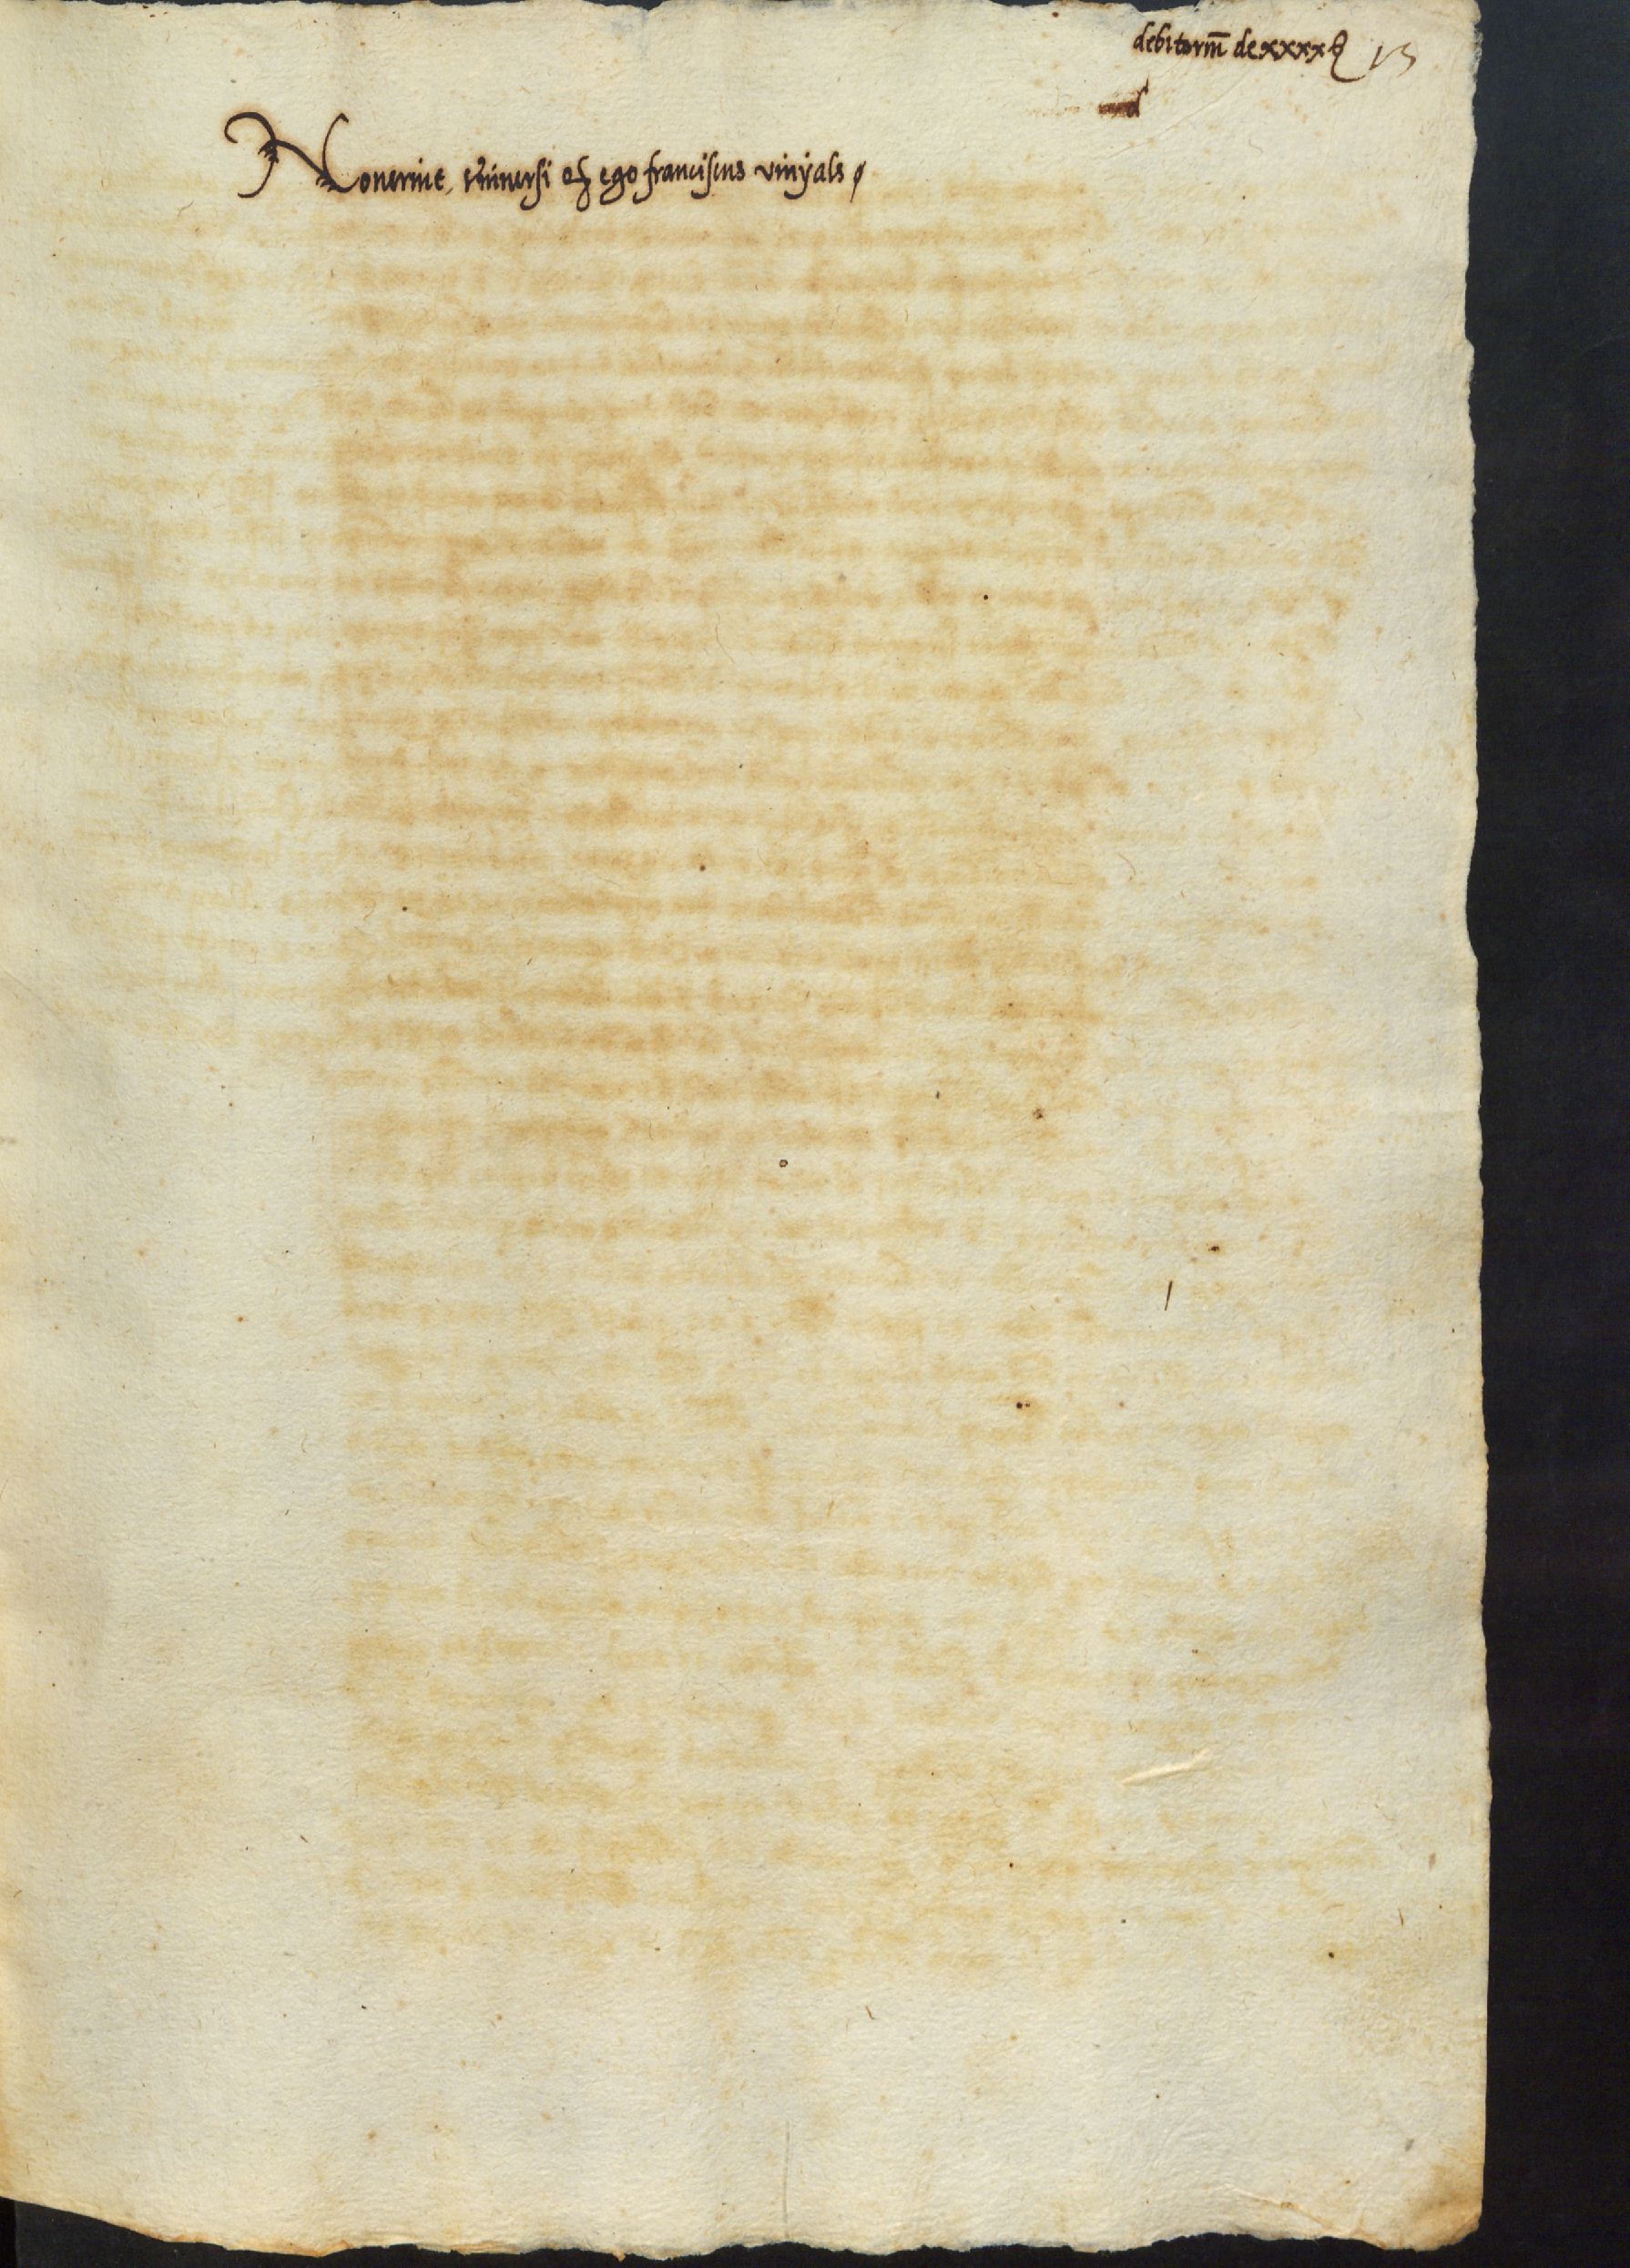 debitoriu̅ de xxxx ℔ 13
Nouerint, vniuersi qꝫ ego franciscus vinyals